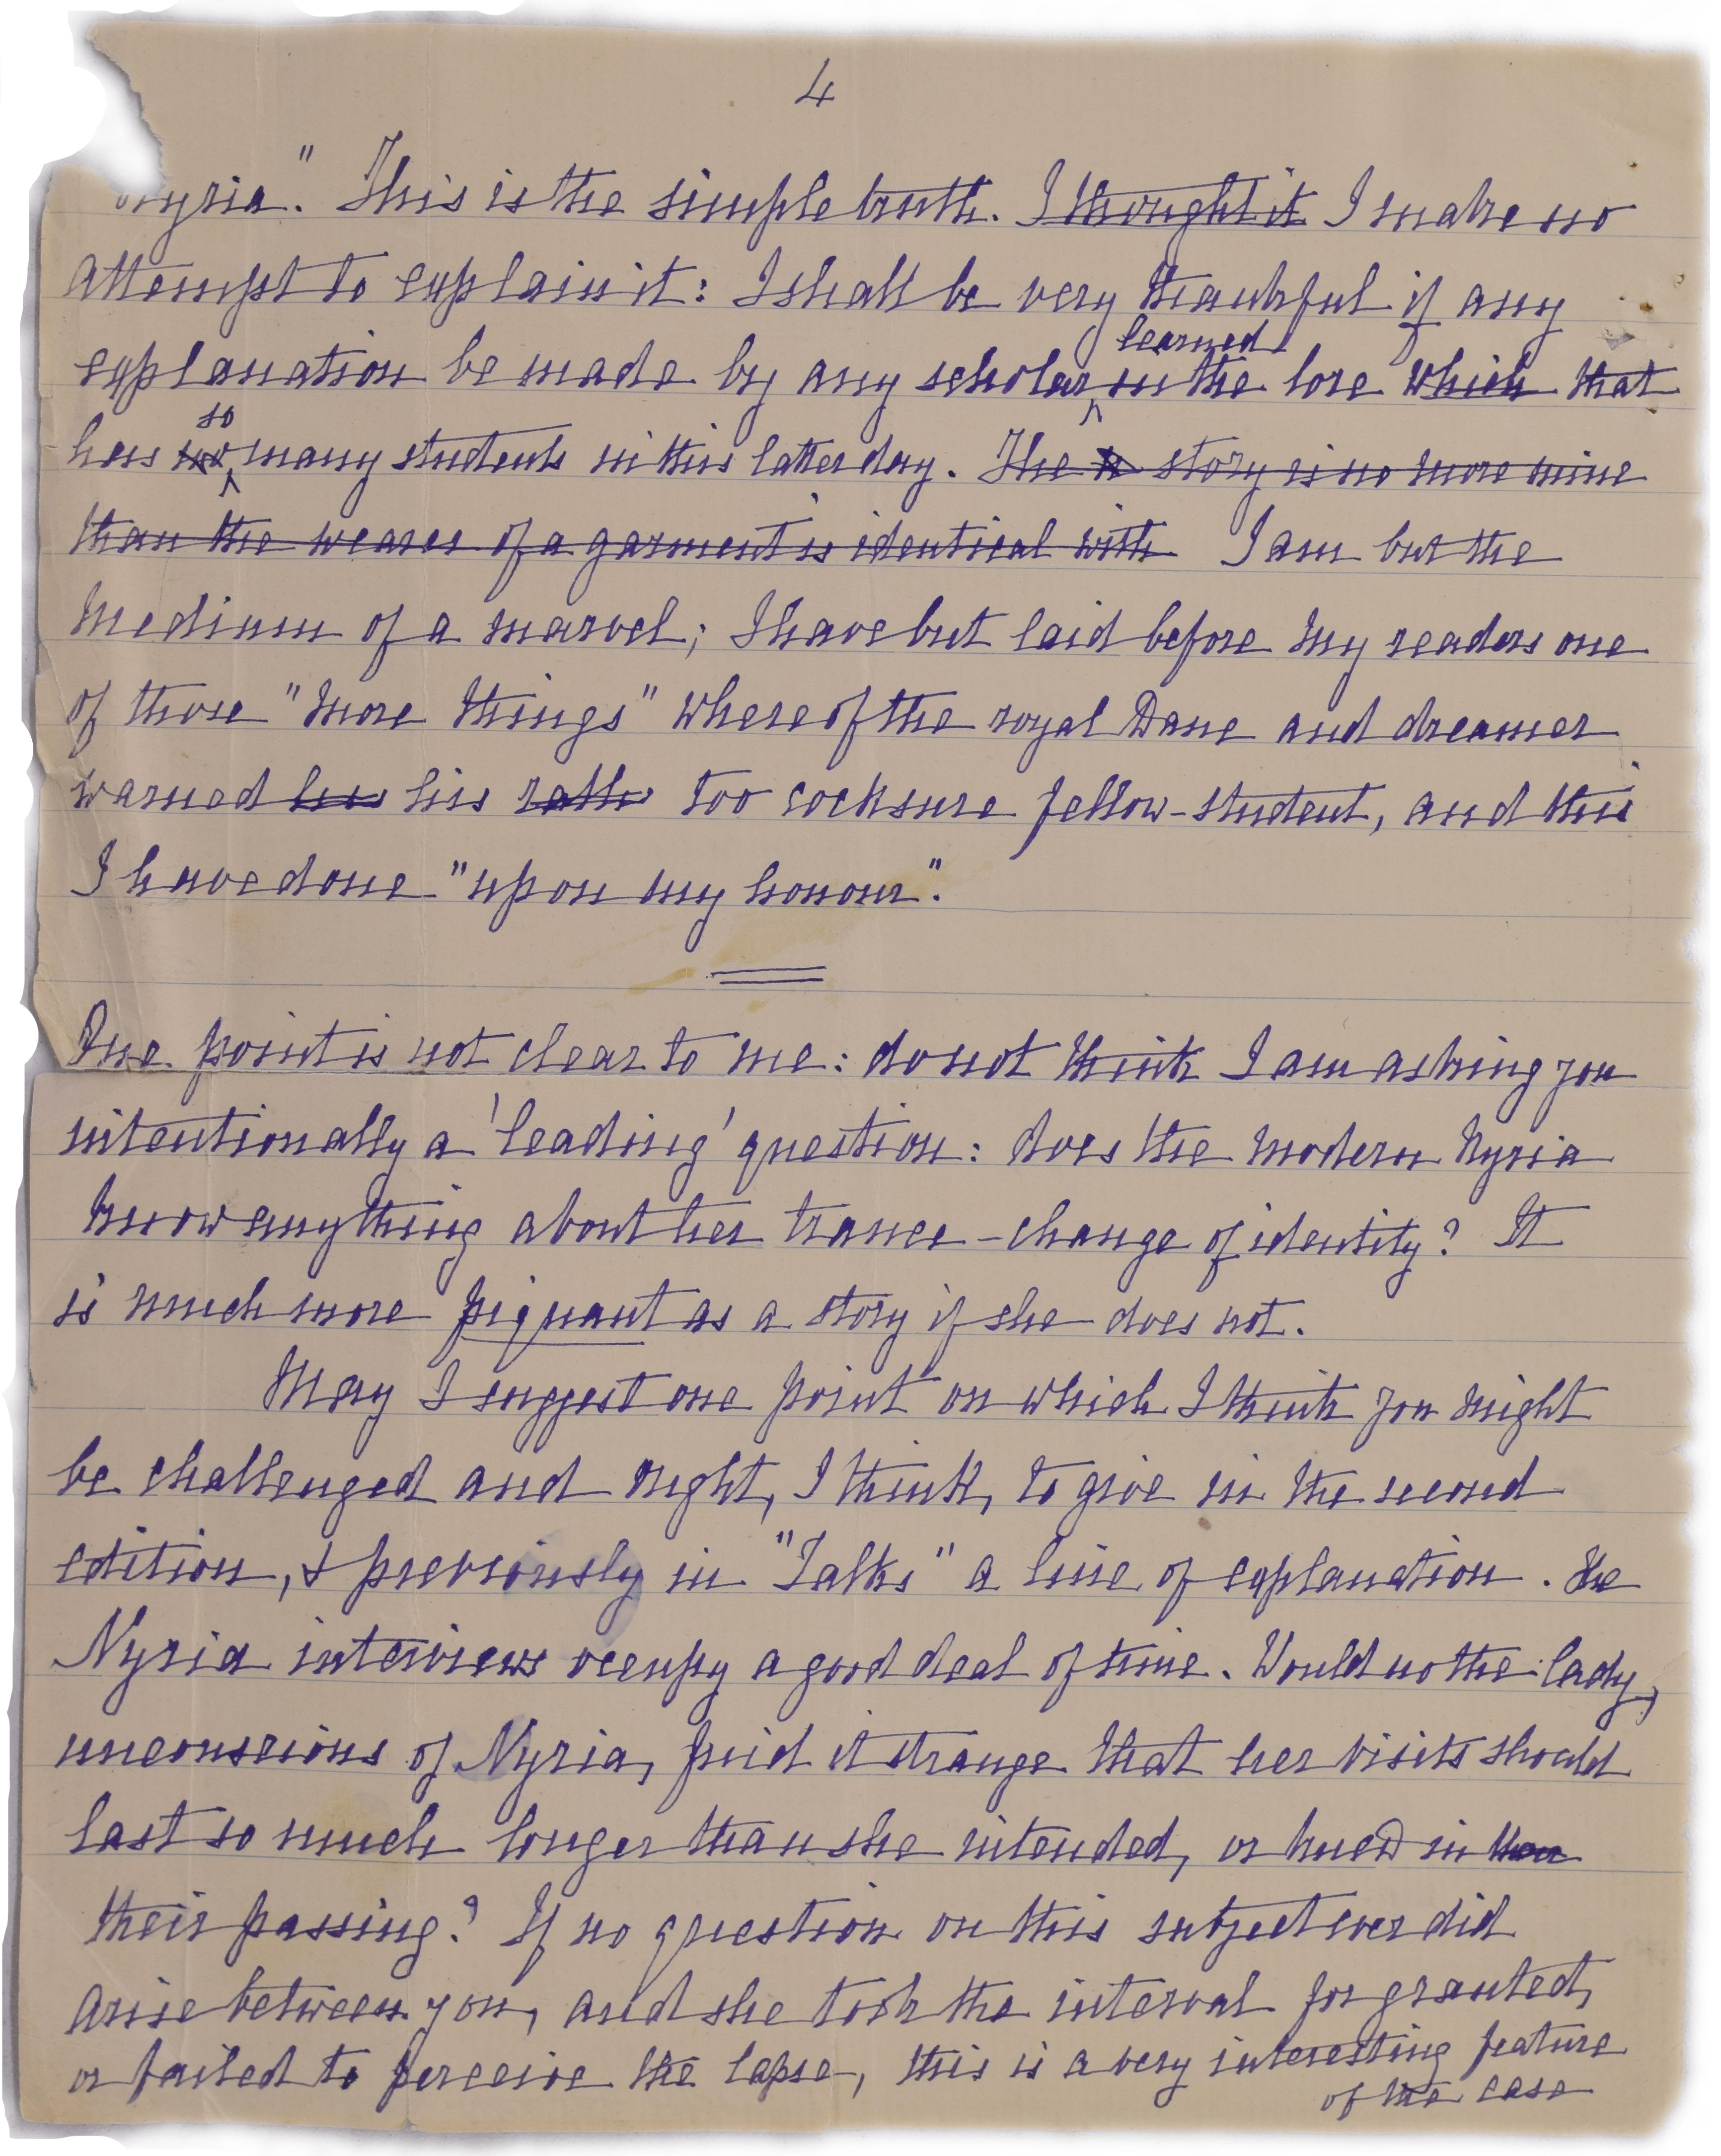 4
Nyria." This is the simple truth. I thought it I make no
attempt to explain it: I shall be very thankful if any
explanation be made by any scholar learned in the lore which that
has so many students in this latter day. The story is no more mine
than the wearer of a garment is identical with I am but the
medium of a marvel; I have but laid before my readers one
of those "more things" whereof the royal Dane and dreamer
warned his his rather too cocksure fellow-student, and this
I have done "upon my honour".
One point is not clear to me: do not think I am asking you
intentionally a 'leading' question: does the modern Nyria
know anything about her trance-change of identity? It
is much more piquant as a story if she does not.
May I suggest one point on which I think you might
be challenged and ought, I think, to give in the second
edition, & previously in "Talks" a line of explanation. The
Nyria interviews occupy a good deal of time. Would no the lady,
unconscious of Nyria, find it strange that her visits should
last so much longer than she intended, or knew in
their passing? If no question on this subject ever did
arise between you, and she took the interval for granted,
or failed to perceive the lapse, this is a very interesting feature
of the case